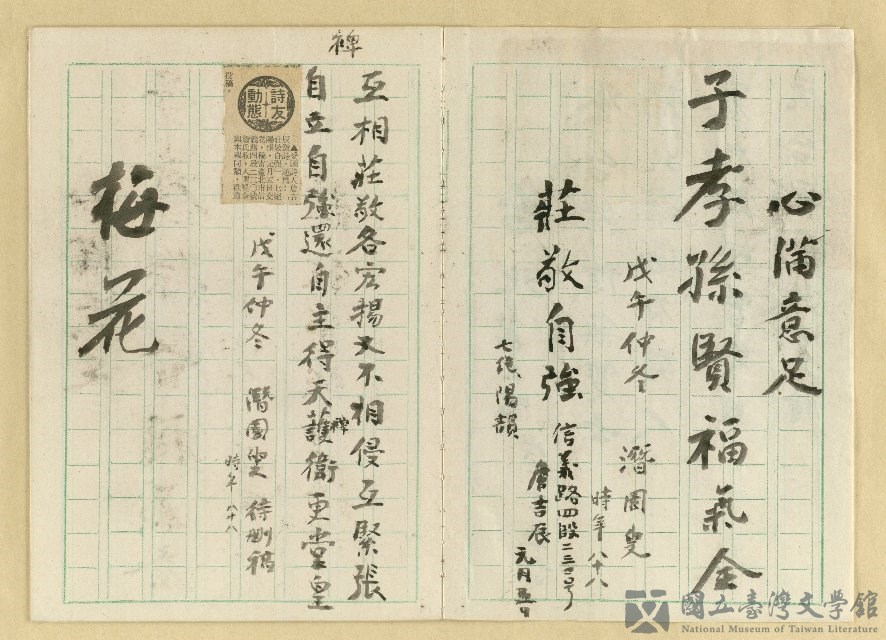 心滿意足
子孝孫賢福氣全
戊午仲冬 潛園叟
時年 八十八
莊敬自強 信義路四段二三〇号
詹吉辰 元月五日
七絕陽韻
裨
互相莊敬各宏揚又不相侵互緊張
自立自強還自主得天護衛更堂皇
裨
戊午仲冬 潛園叟 待刪稿
時年 八十八
詩友
動態
投稿。
梅花
國立臺灣文學館
National Museum of Taiwan Literature